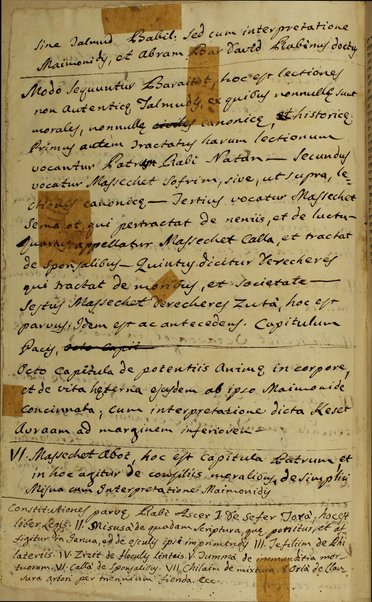 sine Talmud Babil. Sed cum interpretatione
Maimonidy, et Abram Bar David Rabinus doctg
Modo sequuntur Baraitot, hoc est lectiones
non autenticę Talmudy, ex quibus nonnullę sunt
morales, nonnullę civiles canonicę, et historicę
Primus autem tractatus harum lectionum
vocantur Patrum Rabi Natan — Secundus
vocatur Massechet Sofrim, sive, ut supra, le-
ctiones canonicę — Tertius vocatur Massechet
Semaot, qui pertractat de neniis, et de luctu-
Quartus appellatur Massechet Calla, et tractat
de Sponsalibus — Quintus dicitur Derecheres
qui tractat de moribus, et Societate —
Sextus Massechet Derecheres Zuta, hoc est
parvus, idem est ac antecedens. Capitulum
Pacis,
Octo Capitula de potentiis Animę in corpore,
et de vita hęterna ejusdem ab ipso Maimonide
concinnata, cum interpretazione dicta Keset
Avraam ad marginem inferiorem
VI. Massechet Abot, hoc est capitula Patrum et
in hoc agitur de consiliis moralibus, de simplici
Misna cum Interpretatione Maimonidy
Constitutiones parvę Rabi Ascer I De Sefer Torà, hoc est
liber Legis. II. Misusà de quadam Scriptura, quę ponitur, et af
figitur in Janua, ed de osculis ipsi imprimendy III. Tefilim de Phi
lateriis. IV. Zizit de floculis linteis. V Dummà de immunditia mor-
tuorum. VI. Callà de Sponsalibus. VII. Chilaim de mixtura. 8 Orlà de clau
sura arbori per triennium fienda. Ecc.